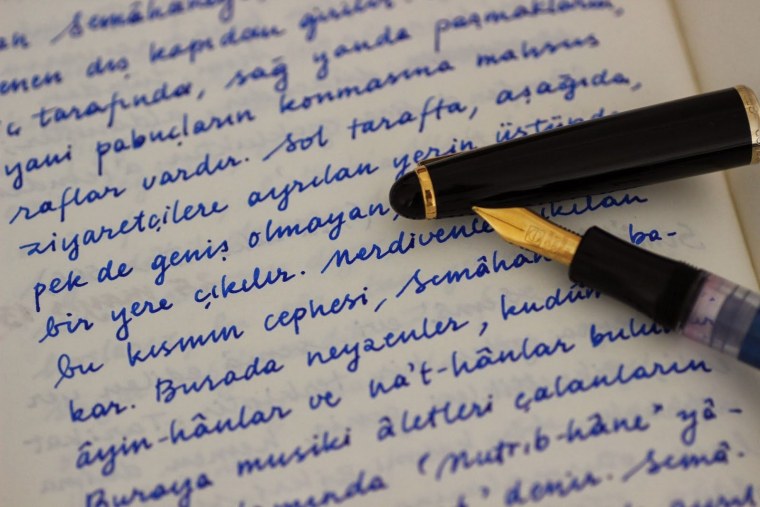 Semâhane
dış kapıdan giriliş
iç tarafında, sağ yanda paşmakların,
yani pabuçların konmasına mahsus
raflar vardır. Sol tarafta, aşağıda,
ziyaretçilere ayrılan yerin üstünde
pek de geniş olmayan,
bir yere çıkılır. Merdivenle çıkılan
bu kısmın cephesi, Semâhane ba-
kar. Burada neyzenler, kudüm
âyin-hânlar ve na't-hânlar bulunur
Buraya musiki âletleri çalanların
"Mutrıb-hâne" yâ-
denir. Semâ-